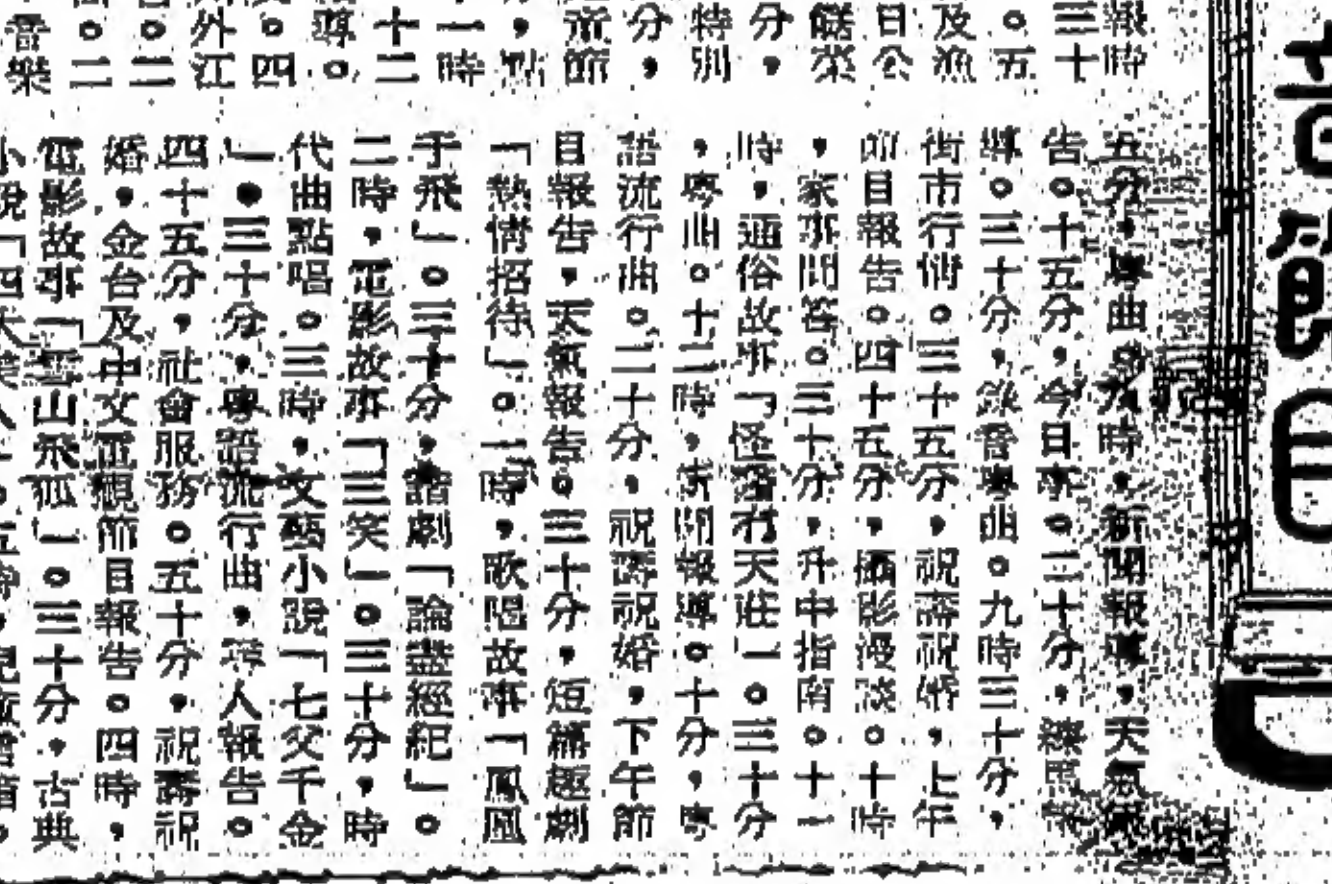 音節目
報時
三十
。五
及漁
日公
分，
特別
分，
，點
一時
十二
導。
。四
外江
。二
。二
音樂
五分，粵曲。　時，新聞報導，天氣報
告。十五分，今日　。二十分，
。三十分，　音粵曲。九時三十分，
街市行情。三十五分，祝壽祝婚，上午
節目報告。四十五分，攝影漫談。十時
，家事問答。三十分，升中指南。十一
時，通俗故事「怪　天莊」。三十分
，粵曲。十二時，新聞報導。十分，粵
語流行曲。二十分，祝壽祝婚，下午節
目報告，天氣報告。三十分，短篇趣劇
「熱情招待」。一時，歌唱故事「鳳凰
于飛」。三十分，諧劇「論盡經紀」。
二時，電影故事「三笑」。三十分，時
代曲點唱。三時，文藝小說「七父千金
」。三十分，粵語流行曲，尋人報告。
四十五分，社會服務。五十分，祝壽祝
婚，金台及中文電視節目報告。四時，
電影故事「雪山飛狐」。三十分，古典
小說「四大美人」。五時，兒